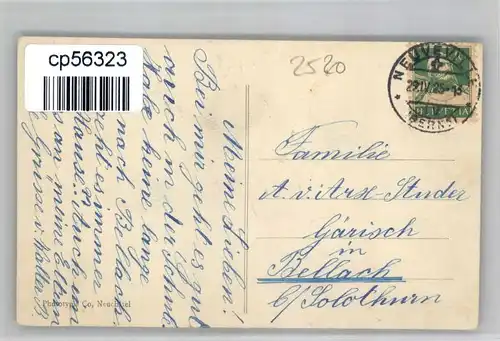 cp56323
2520
NEUVEVILLE
(BERNE)
HELVETIA
Meine Lieben!
Bei mir geht es gut
auch in der Schule.
Habe keine lange
nach Bellach
geht es immer
Hause. Auch ein
an meine Eltern
Grüsse v. Walter B
Familie
A. v. Arx-Studer
Gärisch
in
Bellach
b/Solothurn
Phototypie Co, Neuchâtel